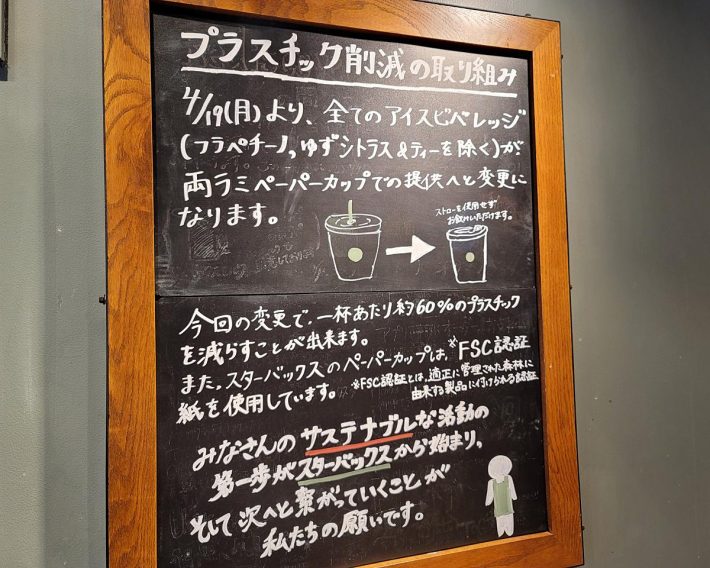 プラスチック削減の取り組み
4/19(月)より、全てのアイスビベレッジ
(フラペチーノ、ゆずシトラス&ティーを除く)が
両ラミペーパーカップでの提供へと変更に
なります。
ストローを使用せず
お飲みいただけます。
今回の変更で、一杯あたり約60%のプラスチック
を減らすことが出来ます。
また、スターバックスのペーパーカップは、※FSC認証
紙を使用しています。
※FSC認証とは、適正に管理された森林に
由来する製品に付けられる認証
みなさんのサステナブルな活動の
第一歩がスターバックスから始まり、
そして次へと繋がっていくことが
私たちの願いです。